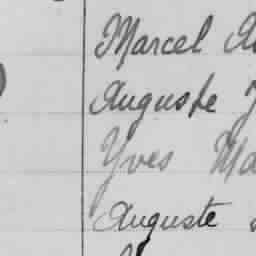 Marcel
Auguste
Yves Ma
Auguste